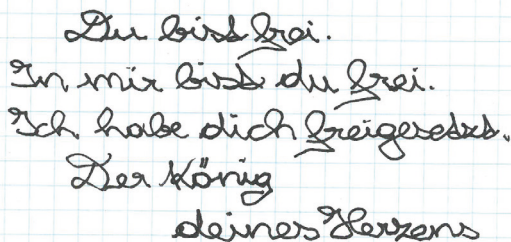 Du bist frei.
In mir bist du frei.
Ich habe dich freigesetzt.
Der König
deines Herzens